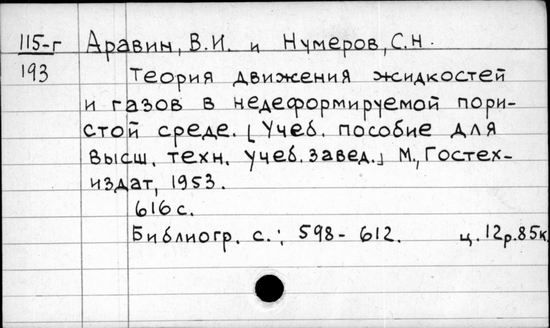 115-г Аравин, В.И. и Нумеров, С.Н.
193 Теория движения жидкостей
и газов в недеформируемой пори-
стой среде. [Учеб. пособие для
высш. техн. учеб. завед.] М., Гостех-
издат, 1953.
616 с.
Библиогр. с.: 598-612. ц. 12р.85к.